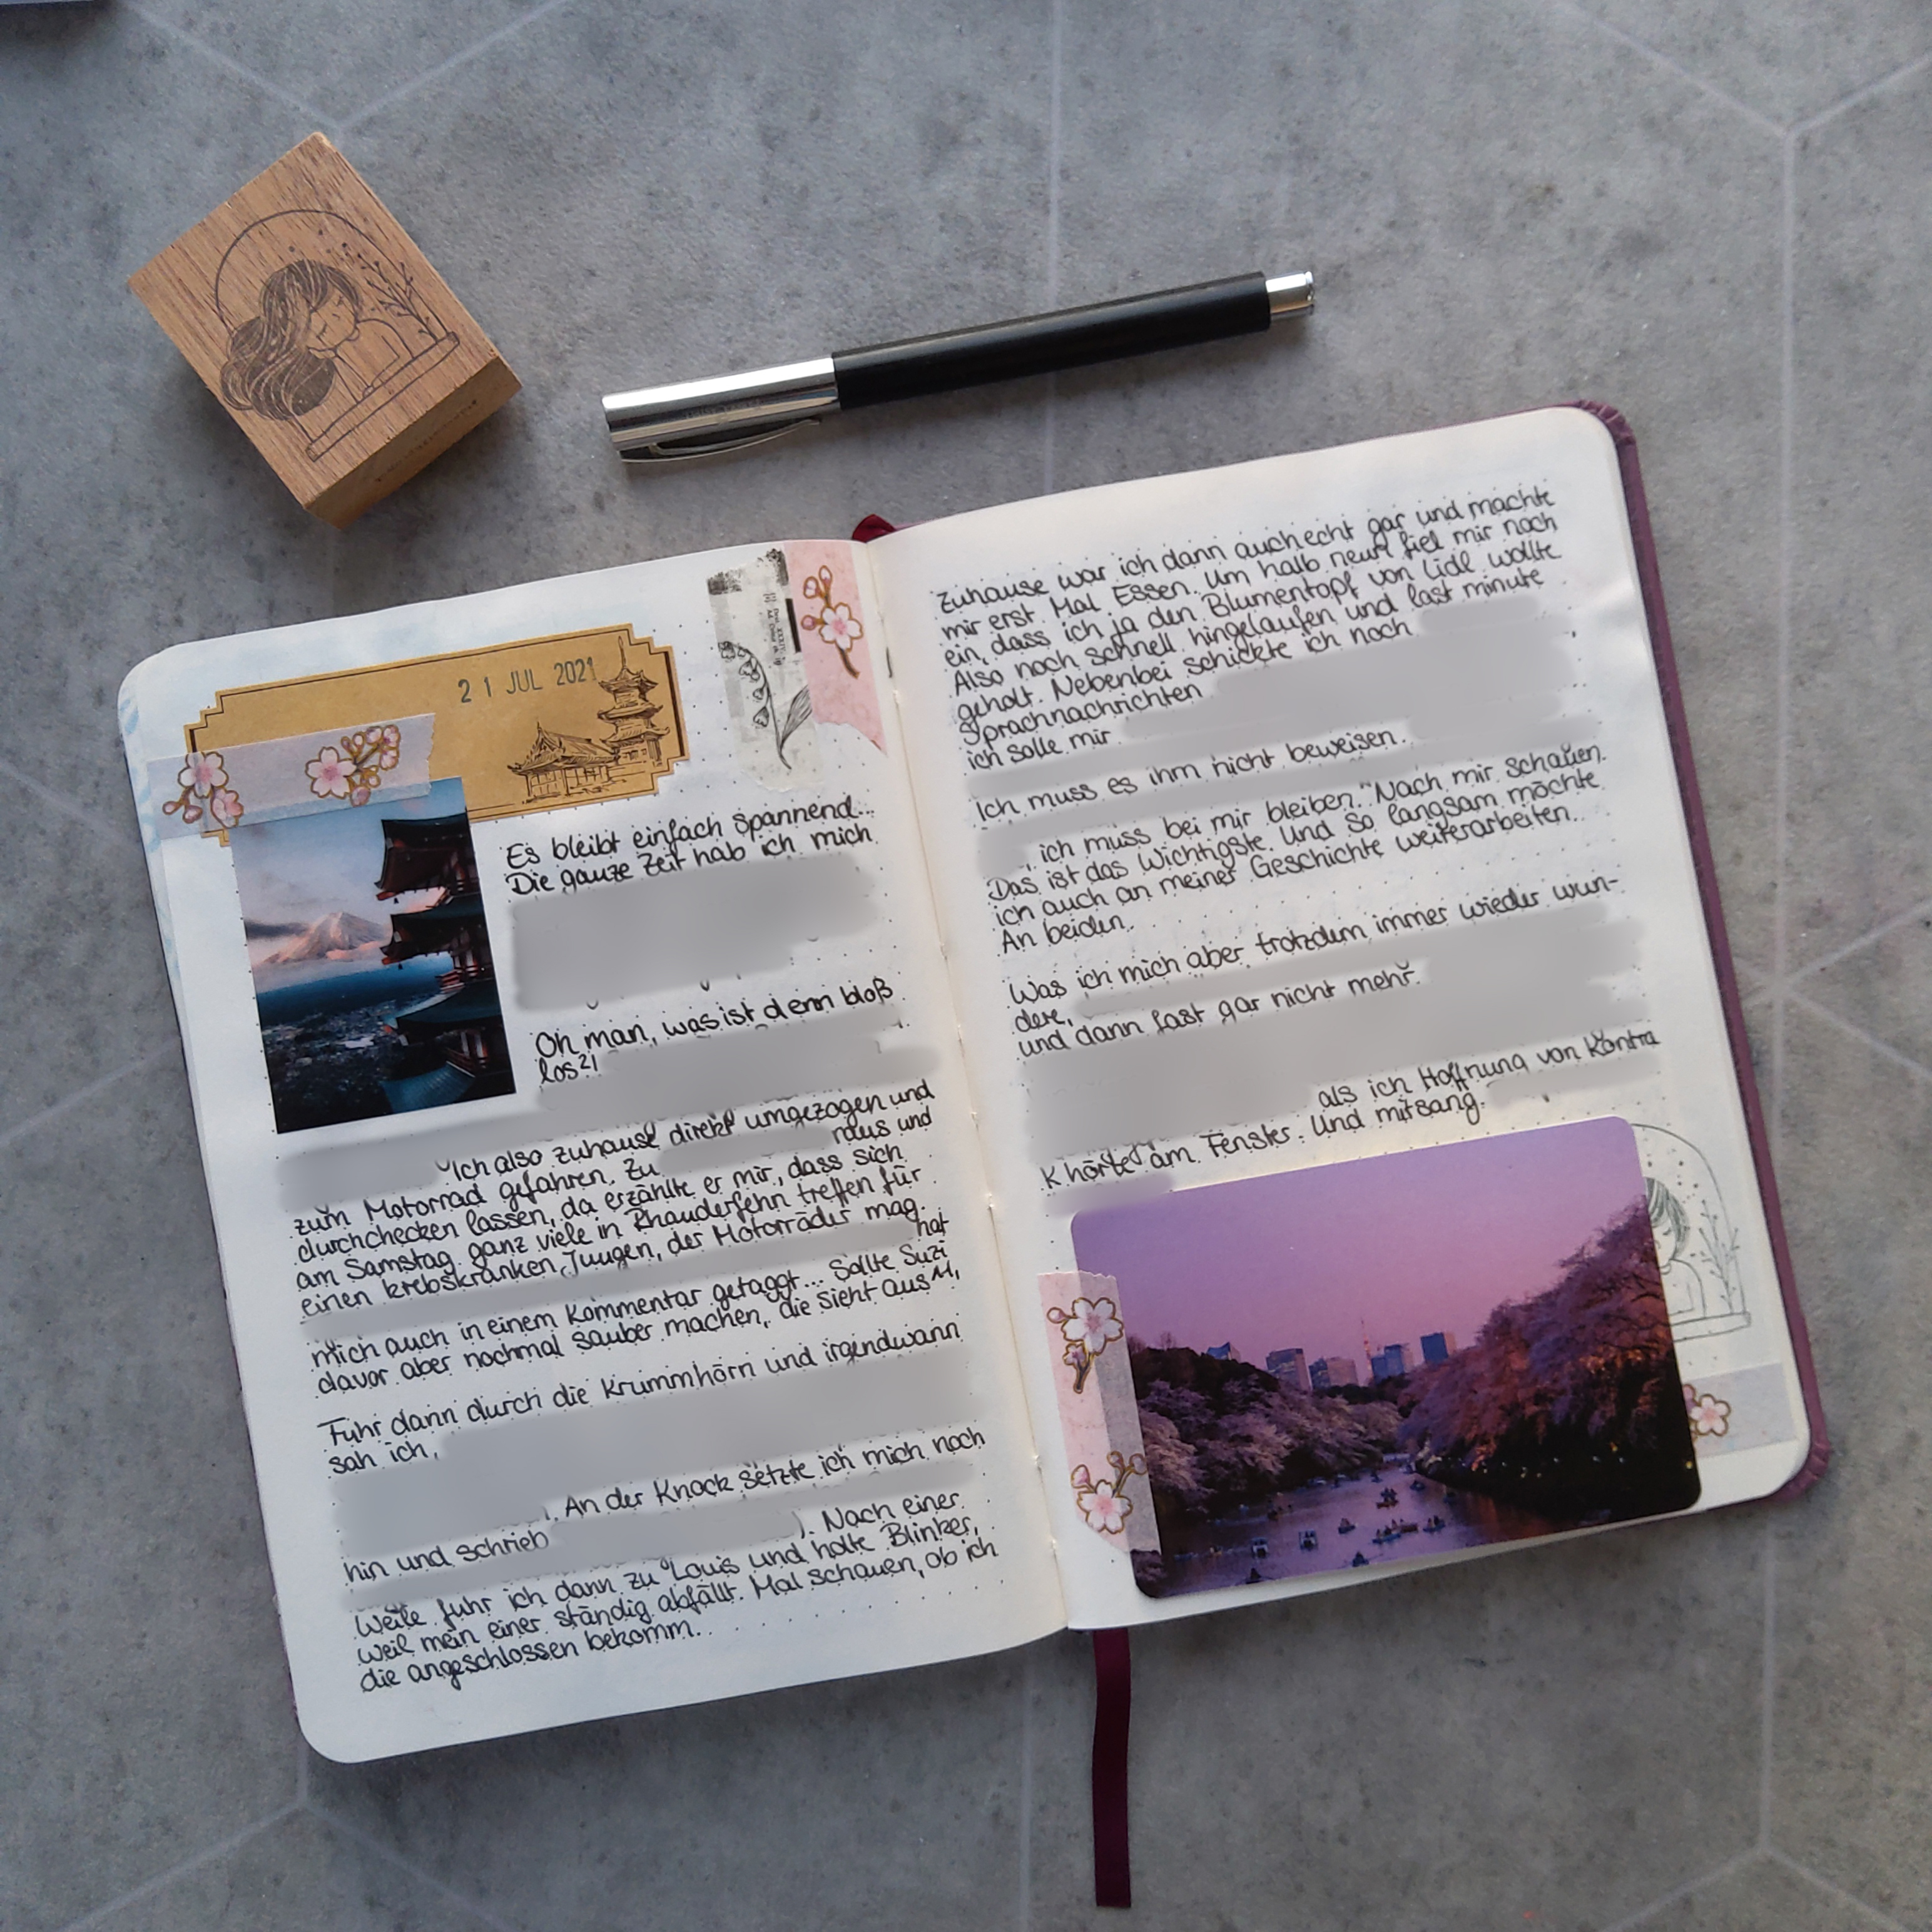 21 JUL 2021
Es bleibt einfach spannend...
Die ganze Zeit hab ich mich
Oh man, was ist denn bloß
los?!
Ich also zuhause direkt umgezogen und
zum Motorrad gefahren. Zu raus und
durchchecken lassen, da erzählte er mir, dass sich
am Samstag ganz viele in Rhauderfehn treffen für
einen krebskranken Jungen, der Motorräder mag.
hat
mich auch in einem Kommentar getaggt... Sollte Suzi
davor aber nochmal sauber machen, die sieht aus^^,
Fuhr dann durch die Krummhörn und irgendwann
sah ich,
. An der Knock setzte ich mich noch
hin und schrieb ). Nach einer
Weile fuhr ich dann zu Louis und holte Blinker,
weil mein einer ständig abfällt. Mal schauen, ob ich
die angeschlossen bekomm.
Zuhause war ich dann auch echt gar und machte
mir erst Mal Essen. Um halb neun fiel mir noch
ein, dass ich ja den Blumentopf von Lidl wollte
Also noch schnell hingelaufen und last minute
geholt. Nebenbei schickte ich noch
Sprachnachrichten
ich solle mir
Ich muss es ihm nicht beweisen.
, ich muss bei mir bleiben. Nach mir schauen.
Das ist das Wichtigste. Und so langsam möchte
ich auch an meiner Geschichte weiterarbeiten.
An beiden.
Was ich mich aber trotzdem immer wieder wun-
dere,
und dann fast gar nicht mehr.
als ich Hoffnung von Kontra
K hörte am Fenster. Und mitsang.